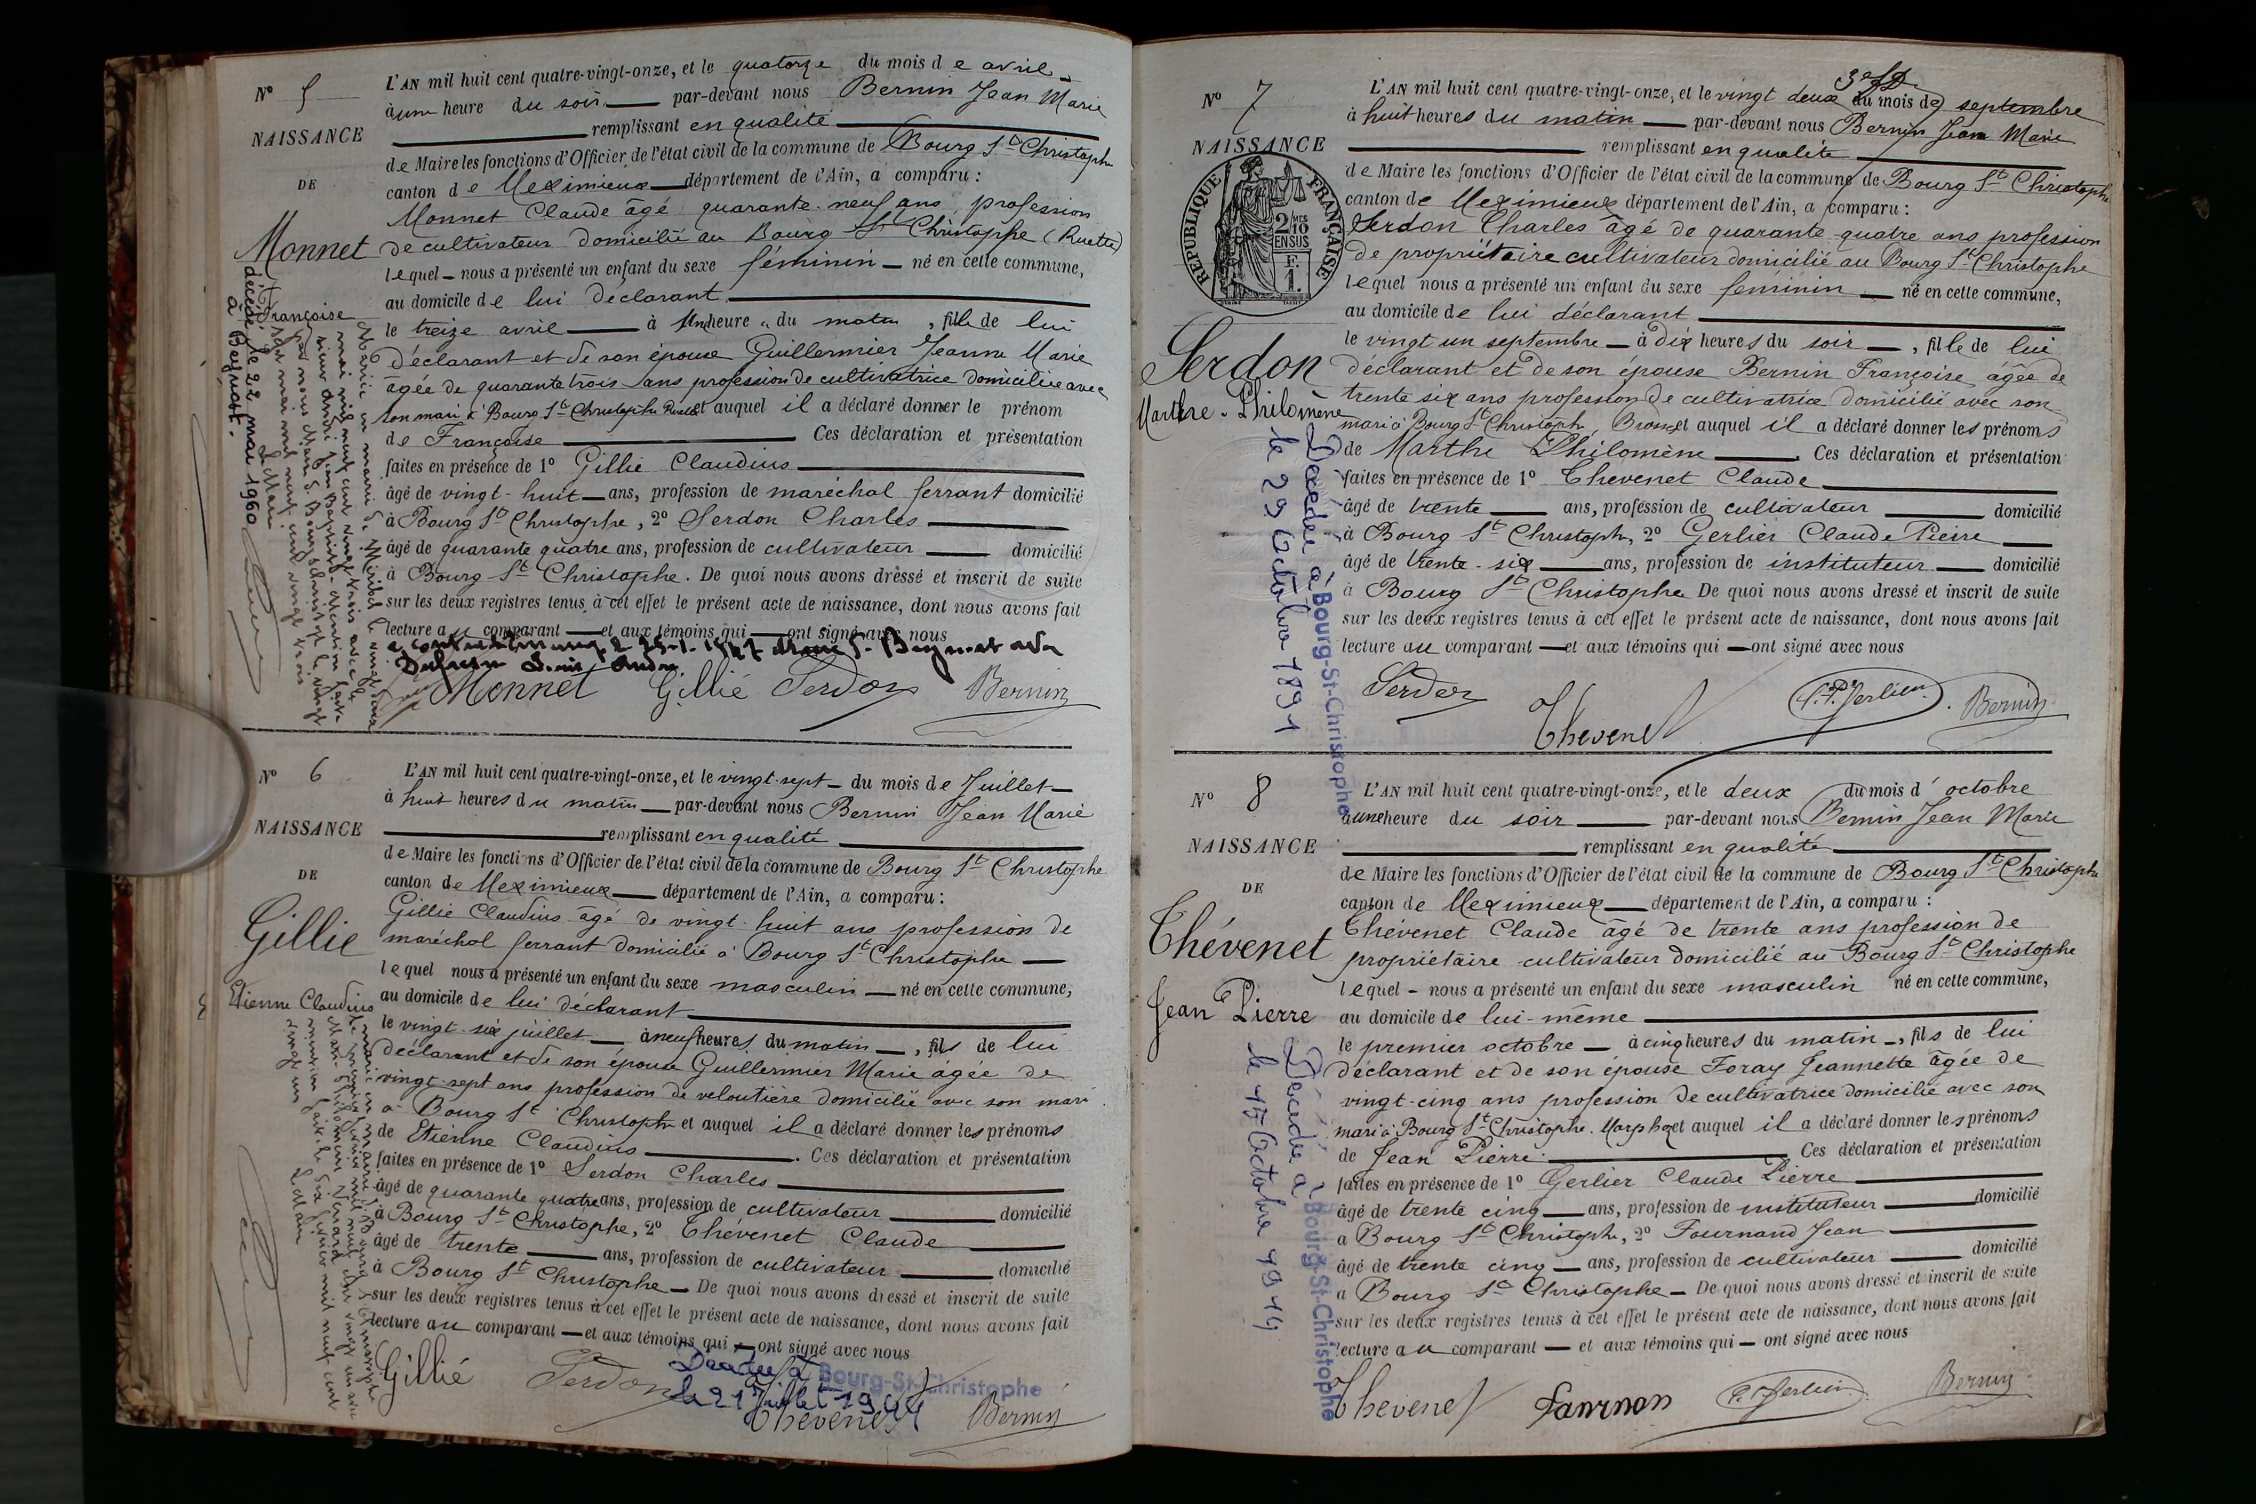 N° 5
NAISSANCE
DE
Monnet
Françoise
décédée le 22 mai 1960
à Beynost.
L'AN mil huit cent quatre-vingt-onze, et le quatorze du mois de avril
à une heure du soir par-devant nous Bernin Jean Marie
remplissant en qualité
de Maire les fonctions d'Officier de l'état civil de la commune de Bourg St Christophe
canton de Meximieux département de l'Ain, a comparu :
Monnet Claude âgé quarante-neuf ans profession
de cultivateur domicilié au Bourg St Christophe (Ruette)
lequel nous a présenté un enfant du sexe féminin né en cette commune,
au domicile de lui déclarant
le treize avril à une heure du matin, fille de lui
déclarant et de son épouse Guillermier Jeanne Marie
âgée de quarante trois ans profession de cultivatrice domiciliée avec
son mari à Bourg St Christophe Ruette et auquel il a déclaré donner le prénom
de Françoise Ces déclaration et présentation
faites en présence de 1° Gillié Claudius
âgé de vingt-huit ans, profession de maréchal ferrant domicilié
à Bourg St Christophe, 2° Serdon Charles
âgé de quarante quatre ans, profession de cultivateur domicilié
à Bourg St Christophe. De quoi nous avons dressé et inscrit de suite
sur les deux registres tenus à cet effet le présent acte de naissance, dont nous avons fait
lecture au comparant et aux témoins qui ont signé avec nous
Monnet Gillié Serdon Bernin
N° 6
NAISSANCE
DE
Gillie
Etienne Claudius
L'AN mil huit cent quatre-vingt-onze, et le vingt-sept du mois de Juillet
à huit heures du matin par-devant nous Bernin Jean Marie
remplissant en qualité
de Maire les fonctions d'Officier de l'état civil de la commune de Bourg St Christophe
canton de Meximieux département de l'Ain, a comparu :
Gillié Claudius âgé de vingt-huit ans profession de
maréchal ferrant domicilié à Bourg St Christophe
lequel nous a présenté un enfant du sexe masculin né en cette commune,
au domicile de lui déclarant
le vingt-six juillet à neuf heures du matin, fils de lui
déclarant et de son épouse Guillermier Marie âgée de
vingt-sept ans profession de veloutière domicilié avec son mari
à Bourg St Christophe et auquel il a déclaré donner les prénoms
de Etienne Claudius. Ces déclaration et présentation
faites en présence de 1° Serdon Charles
âgé de quarante quatre ans, profession de cultivateur domicilié
à Bourg St Christophe, 2° Thévenet Claude
âgé de trente ans, profession de cultivateur domicilié
à Bourg St Christophe De quoi nous avons dressé et inscrit de suite
sur les deux registres tenus à cet effet le présent acte de naissance, dont nous avons fait
lecture au comparant et aux témoins qui ont signé avec nous
Décédé à Bourg-St-Christophe
le 21 Juillet 1944
Gillié Serdon Thevenet Bernin
N° 7
NAISSANCE
RÉPUBLIQUE FRANÇAISE
2 MES 10 EN SUS
F. 1.
Serdon
Marthe-Philomène
Décédée à Bourg-St-Christophe
le 29 Octobre 1891
L'AN mil huit cent quatre-vingt-onze, et le vingt deux du mois de septembre
à huit heures du matin par-devant nous Bernin Jean Marie
remplissant en qualité
de Maire les fonctions d'Officier de l'état civil de la commune de Bourg St Christophe
canton de Meximieux département de l'Ain, a comparu :
Serdon Charles âgé de quarante-quatre ans profession
de propriétaire cultivateur domicilié au Bourg St Christophe
lequel nous a présenté un enfant du sexe féminin né en cette commune,
au domicile de lui déclarant
le vingt un septembre à dix heures du soir, fille de lui
déclarant et de son épouse Bernin Françoise âgée de
trente six ans profession de cultivatrice domicilié avec son
mari à Bourg St Christophe, et auquel il a déclaré donner les prénoms
de Marthe Philomène Ces déclaration et présentation
faites en présence de 1° Thevenet Claude
âgé de trente ans, profession de cultivateur domicilié
à Bourg St Christophe, 2° Gerlier Claude Pierre
âgé de trente-six ans, profession de instituteur domicilié
à Bourg St Christophe De quoi nous avons dressé et inscrit de suite
sur les deux registres tenus à cet effet le présent acte de naissance, dont nous avons fait
lecture au comparant et aux témoins qui ont signé avec nous
Serdon Thevenet C. P. Gerlier Bernin
N° 8
NAISSANCE
DE
Thévenet
Jean Pierre
Décédé à Bourg-St-Christophe
L'AN mil huit cent quatre-vingt-onze, et le deux du mois d'octobre
à une heure du soir par-devant nous Bernin Jean Marie
remplissant en qualité
de Maire les fonctions d'Officier de l'état civil de la commune de Bourg St Christophe
canton de Meximieux département de l'Ain, a comparu :
Thévenet Claude âgé de trente ans profession de
propriétaire cultivateur domicilié au Bourg St Christophe
lequel nous a présenté un enfant du sexe masculin né en cette commune,
au domicile de lui-même
le premier octobre à cinq heures du matin, fils de lui
déclarant et de son épouse Foray Jeannette âgée de
vingt-cinq ans profession de cultivatrice domicilié avec son
mari à Bourg St Christophe. et auquel il a déclaré donner les prénoms
de Jean Pierre. Ces déclaration et présentation
faites en présence de 1° Gerlier Claude Pierre
âgé de trente cinq ans, profession de instituteur domicilié
à Bourg St Christophe, 2° Fournand Jean
âgé de trente cinq ans, profession de cultivateur domicilié
à Bourg St Christophe De quoi nous avons dressé et inscrit de suite
sur les deux registres tenus à cet effet le présent acte de naissance, dont nous avons fait
lecture au comparant et aux témoins qui ont signé avec nous
Thevenet C. P. Gerlier Bernin